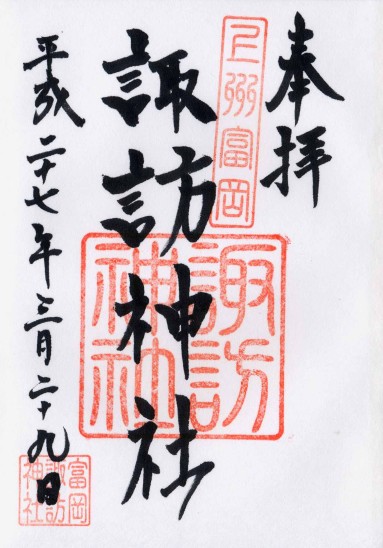 奉拝
上州富岡
諏訪神社
諏訪
神社
平成二十七年三月二十九日
富岡
諏訪
神社